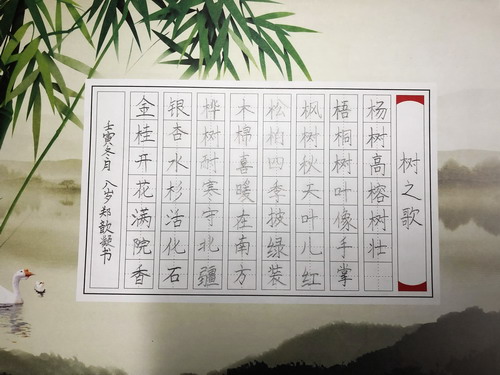 树之歌
杨树高榕树壮
梧桐树叶像手掌
枫树秋天叶儿红
松柏四季披绿装
木棉喜暖在南方
桦树耐寒守北疆
银杏水杉活化石
金桂开花满院香
壬寅冬月 八岁郑歆凝书